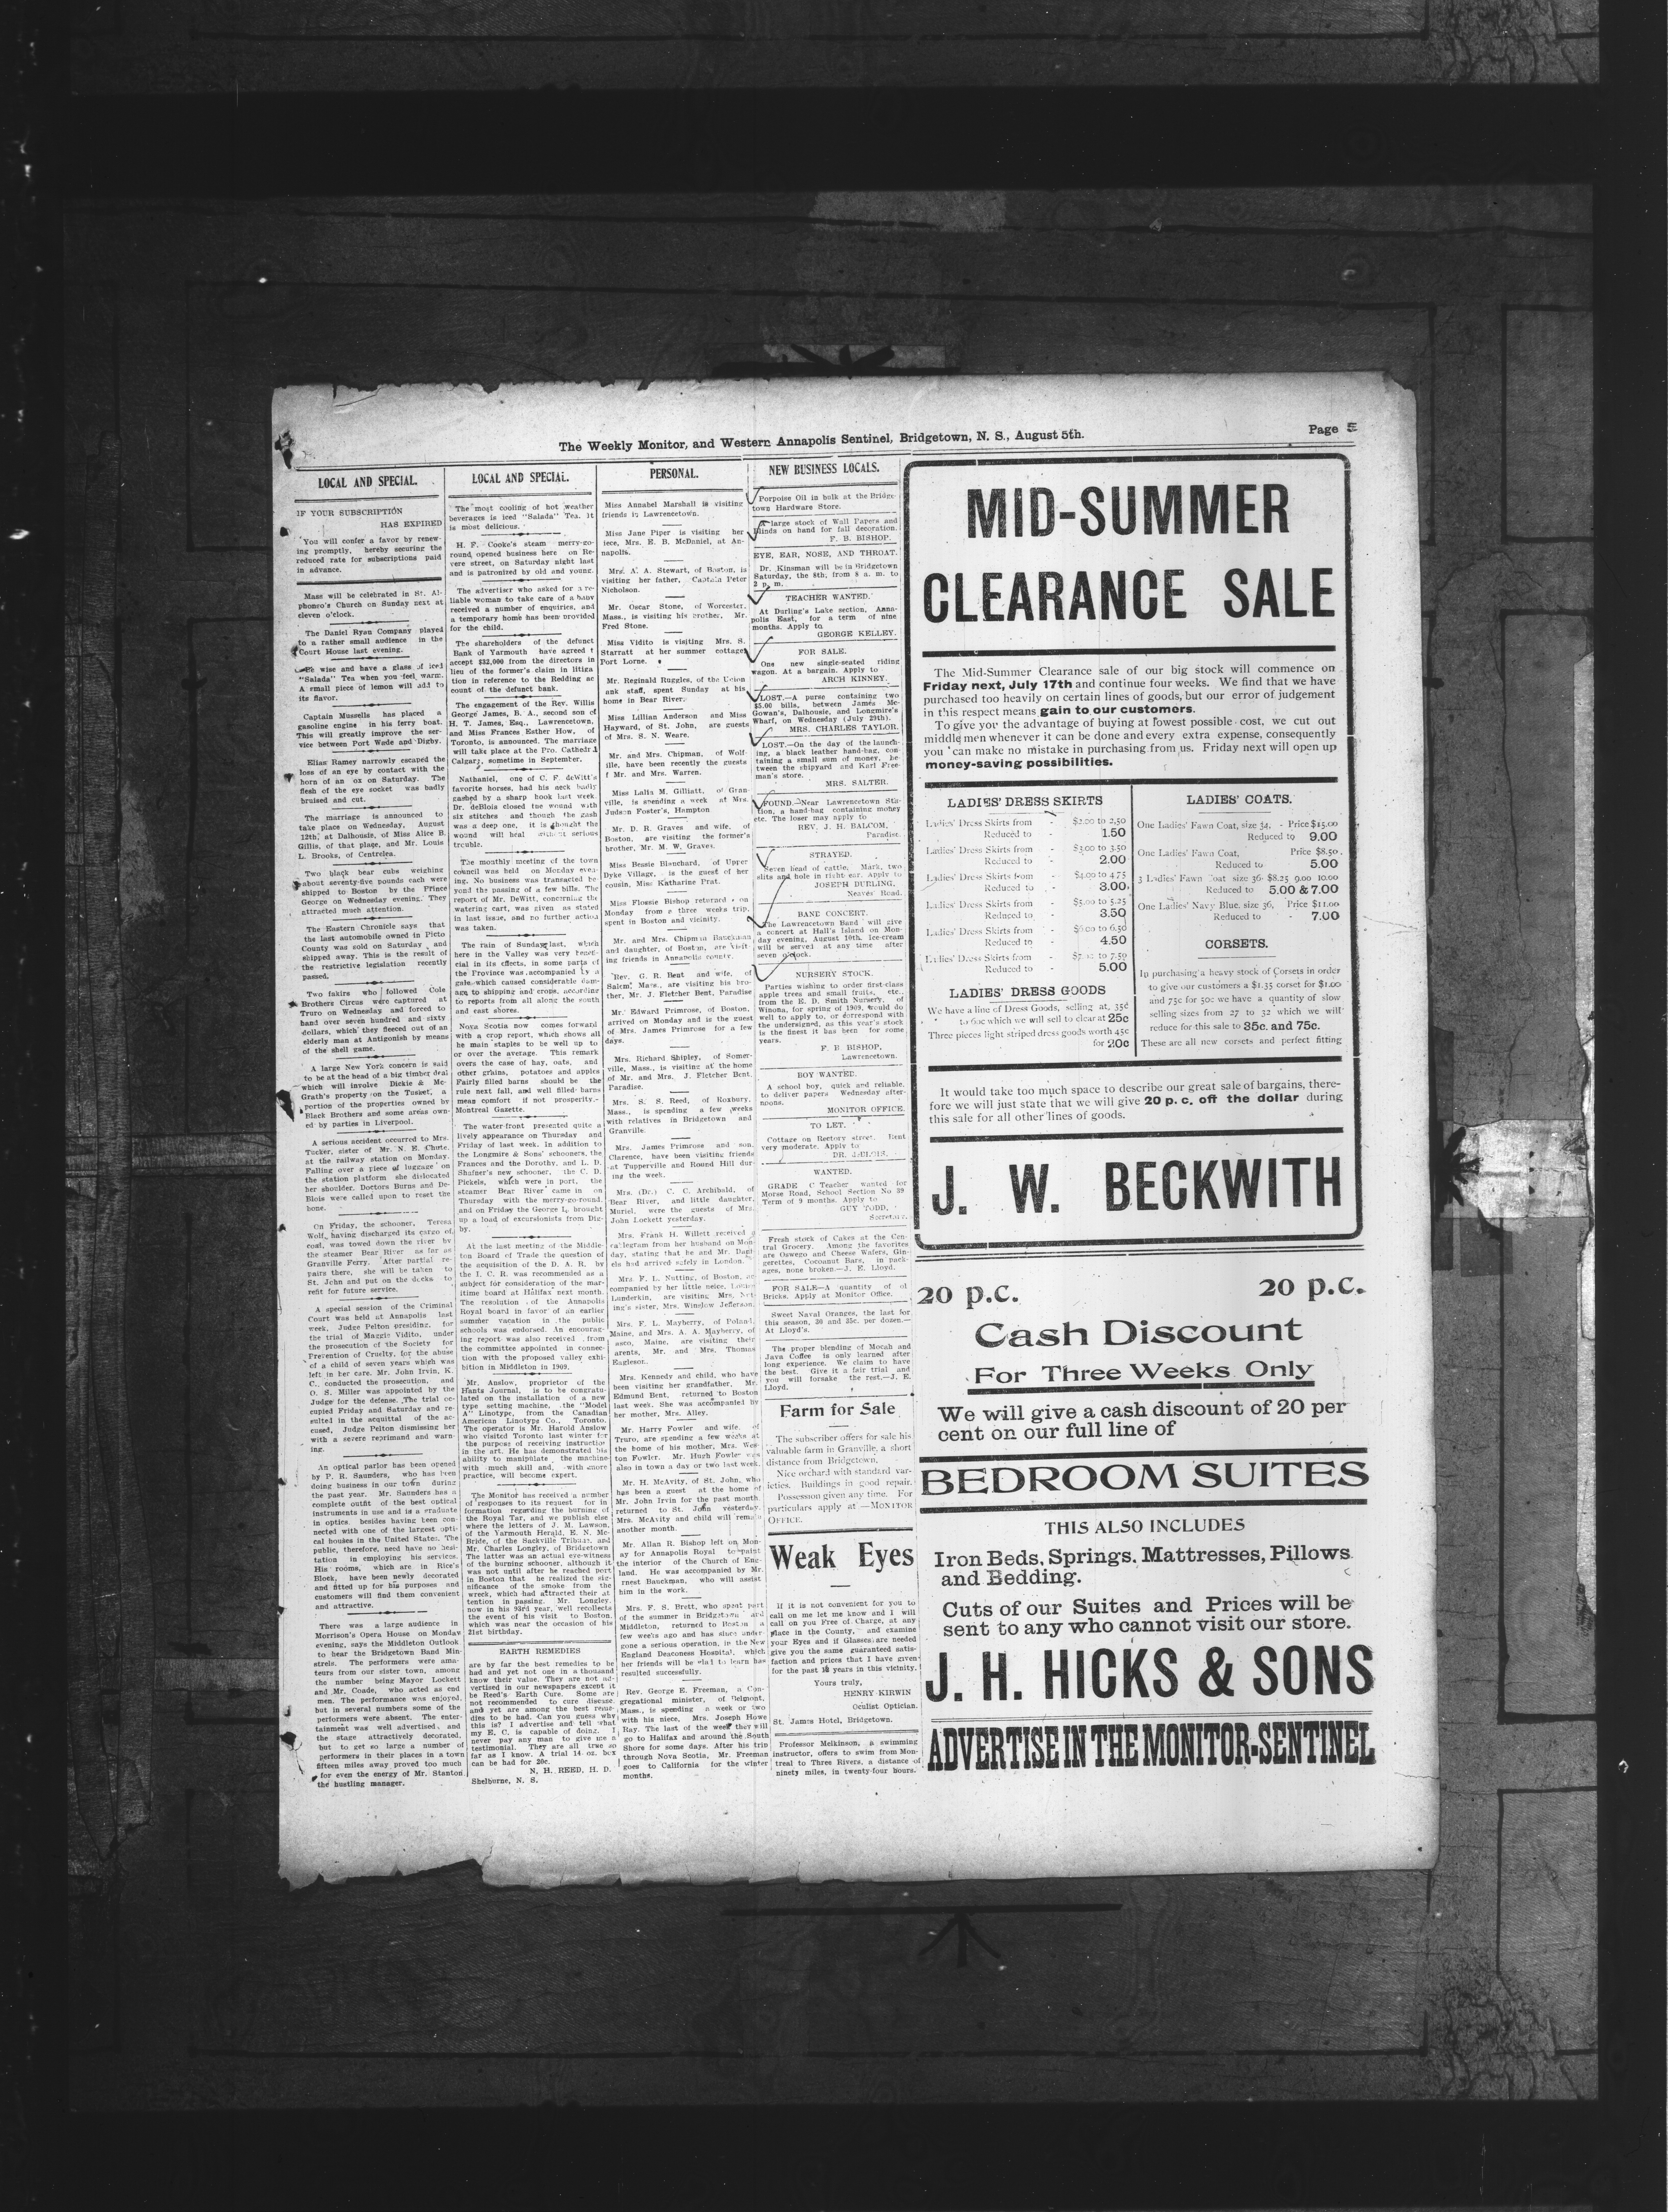 The Weekly Monitor, and Western Annapolis Sentinel, Bridgetown, N. S., August 5th.
Page 5
LOCAL AND SPECIAL.
IF YOUR SUBSCRIPTION
HAS EXPIRED
You will confer a favor by renew-
ing promptly, hereby securing the
reduced rate for subscriptions paid
in advance.
Mass will be celebrated in St. Al-
phonso's Church on Sunday next at
eleven o'clock.
The Daniel Ryan Company played
to a rather small audience in the
Court House last evening.
wise and have a glass of iced
"Salada" Tea when you feel warm.
A small piece of lemon will add to
its flavor.
Captain Mussells has placed a
gasoline engine in his ferry boat.
This will greatly improve the ser-
vice between Port Wade and Digby.
Elias Ramey narrowly escaped the
loss of an eye by contact with the
horn of an ox on Saturday. The
flesh of the eye socket was badly
bruised and cut.
The marriage is announced to
take place on Wednesday, August
12th, at Dalhousie, of Miss Alice B.
Gillis, of that place, and Mr. Louis
L. Brooks, of Centrelea.
Two black bear cubs weighing
about seventy-five pounds each were
shipped to Boston by the Prince
George on Wednesday evening. They
attracted much attention.
The Eastern Chronicle says that
the last automobile owned in Picto
County was sold on Saturday and
shipped away. This is the result of
the restrictive legislation recently
passed.
Two fakirs who followed Cole
Brothers Circus were captured at
Truro on Wednesday and forced to
hand over seven hundred and sixty
dollars, which they fleeced out of an
elderly man at Antigonish by means
of the shell game.
A large New York concern is said
to be at the head of a big timber deal
which will involve Dickie & Mc-
Grath's property on the Tusket, a
portion of the properties owned by
Black Brothers and some areas own-
ed by parties in Liverpool.
A serious accident occurred to Mrs.
Tucker, sister of Mr. N. E. Chute,
at the railway station on Monday.
Falling over a piece of luggage on
the station platform she dislocated
her shoulder. Doctors Burns and De-
Blois were called upon to reset the
bone.
On Friday, the schooner, Teresa
Wolf, having discharged its cargo of
coal, was towed down the river by
the steamer Bear River as far as
Granville Ferry. After partial re-
pairs there, she will be taken to
St. John and put on the docks to
refit for future service.
A special session of the Criminal
Court was held at Annapolis last
week, Judge Pelton presiding, for
the trial of Maggie Vidito, under
the prosecution of the Society for
Prevention of Cruelty, for the abuse
of a child of seven years which was
left in her care. Mr. John Irvin, K.
C., conducted the prosecution, and
O. S. Miller was appointed by the
Judge for the defense. The trial oc-
cupied Friday and Saturday and re-
sulted in the acquittal of the ac-
cused, Judge Pelton dismissing her
with a severe reprimand and warn-
ing.
An optical parlor has been opened
by P. R. Saunders, who has been
doing business in our town during
the past year. Mr. Saunders has a
complete outfit of the best optical
instruments in use and is a graduate
in optics, besides having been con-
nected with one of the largest opti-
cal houses in the United States. The
public, therefore, need have no hesi-
tation in employing his services.
His rooms, which are in Rice's
Block, have been newly decorated
and fitted up for his purposes and
customers will find them convenient
and attractive.
There was a large audience in
Morrison's Opera House on Monday
evening, says the Middleton Outlook
to hear the Bridgetown Band Min-
strels. The performers were ama-
teurs from our sister town, among
the number being Mayor Lockett
and Mr. Coade, who acted as end
men. The performance was enjoyed,
but in several numbers some of the
performers were absent. The enter-
tainment was well advertised, and
the stage attractively decorated,
but to get so large a number of
performers in their places in a town
fifteen miles away proved too much
for even the energy of Mr. Stanton
the hustling manager.
LOCAL AND SPECIAL.
The most cooling of hot weather
beverages is iced "Salada" Tea. It
is most delicious.
H. F. Cooke's steam merry-go-
round opened business here on Re-
vere street, on Saturday night last
and is patronized by old and young.
The advertiser who asked for a re-
liable woman to take care of a baby
received a number of enquiries, and
a temporary home has been provided
for the child.
The shareholders of the defunct
Bank of Yarmouth have agreed t
accept $32,000 from the directors in
lieu of the former's claim in litiga
tion in reference to the Redding ac
count of the defunct bank.
The engagement of the Rev. Willis
George James, B. A., second son of
H. T. James, Esq., Lawrencetown,
and Miss Frances Esther How, of
Toronto, is announced. The marriage
will take place at the Pro. Cathedral
Calgary, sometime in September.
Nathaniel, one of C. F. deWitt's
favorite horses, had his neck badly
gashed by a sharp hook last week.
Dr. deBlois closed the wound with
six stitches and though the gash
was a deep one, it is thought the
wound will heal without serious
trouble.
The monthly meeting of the town
council was held on Monday even-
ing. No business was transacted be-
yond the passing of a few bills. The
report of Mr. DeWitt, concerning the
watering cart, was given as stated
in last issue, and no further action
was taken.
The rain of Sunday last, which
here in the Valley was very benefi-
cial in its effects, in some parts of
the Province was accompanied by a
gale which caused considerable dam-
age to shipping and crops, according
to reports from all along the south
and east shores.
Nova Scotia now comes forward
with a crop report, which shows all
he main staples to be well up to
or over the average. This remark
overs the case of hay, oats, and
other grains, potatoes and apples
Fairly filled barns should be the
rule next fall, and well filled barns
mean comfort if not prosperity.-
Montreal Gazette.
The water-front presented quite a
lively appearance on Thursday and
Friday of last week. In addition to
the Longmire & Sons' schooners, the
Frances and the Dorothy, and L. D.
Shafner's new schooner, the C. D.
Pickels, which were in port, the
steamer Bear River came in on
Thursday with the merry-go-round,
and on Friday the George L. brought
up a load of excursionists from Dig-
by.
At the last meeting of the Middle-
ton Board of Trade the question of
the acquisition of the D. A. R. by
the I. C. R. was recommended as a
subject for consideration of the mar-
itime board at Halifax next month.
The resolution of the Annapolis
Royal board in favor of an earlier
summer vacation in the public
schools was endorsed. An encourag-
ing report was also received from
the committee appointed in connec-
tion with the proposed valley exhi-
bition in Middleton in 1909.
Mr. Anslow, proprietor of the
Hants Journal, is to be congratu-
lated on the installation of a new
type setting machine, the "Model
A" Linotype, from the Canadian
American Linotype Co., Toronto.
The operator is Mr. Harold Anslow
who visited Toronto last winter for
the purpose of receiving instruction
in the art. He has demonstrated his
ability to manipulate the machine
with much skill and, with more
practice, will become expert.
The Monitor has received a number
of responses to its request for in
formation regarding the burning of
the Royal Tar, and we publish else
where the letters of J. M. Lawson,
of the Yarmouth Herald, E. N. Mc-
Bride, of the Sackville Tribune, and
Mr. Charles Longley, of Bridgetown
The latter was an actual eye-witness
of the burning schooner, although it
was not until he reached port
in Boston that he realized the sig-
nificance of the smoke from the
wreck, which had attracted their at
tention in passing. Mr. Longley,
now in his 93rd year, well recollects
the event of his visit to Boston,
which was near the occasion of his
21st birthday.
EARTH REMEDIES
are by far the best remedies to be
had and yet not one in a thousand
know their value. They are not ad-
vertised in our newspapers except it
be Reed's Earth Cure. Some are
not recommended to cure disease
and yet are among the best reme-
dies to be had. Can you guess why
this is? I advertise and tell what
my E. C. is capable of doing. I
never pay any man to give me a
testimonial. They are all true so
far as I know. A trial 14 oz. box
can be had for 20c.
N. H. REED, H. D.
Shelburne, N. S.
PERSONAL.
Miss Annabel Marshall is visiting
friends in Lawrencetown.
Miss Jane Piper is visiting her
iece, Mrs. E. B. McDaniel, at An-
napolis.
Mrs. A. A. Stewart, of Boston, is
visiting her father, Captain Peter
Nicholson.
Mr. Oscar Stone, of Worcester,
Mass., is visiting his brother, Mr.
Fred Stone.
Miss Vidito is visiting Mrs. S.
Starratt at her summer cottage
Port Lorne.
Mr. Reginald Ruggles, of the Union
ank staff, spent Sunday at his
home in Bear River.
Miss Lillian Anderson and Miss
Hayward, of St. John, are guests
of Mrs. S. N. Weare.
Mr. and Mrs. Chipman, of Wolf-
ille, have been recently the guests
f Mr. and Mrs. Warren.
Miss Lalia M. Gilliatt, of Gran-
ville, is spending a week at Mrs.
Judson Foster's, Hampton
Mr. D. R. Graves and wife, of
Boston, are visiting the former's
brother, Mr. M. W. Graves.
Miss Bessie Blanchard, of Upper
Dyke Village, is the guest of her
cousin, Miss Katharine Prat.
Miss Flossie Bishop returned on
Monday from a three weeks trip,
spent in Boston and vicinity.
Mr. and Mrs. Chipman Bauckman
and daughter, of Boston, are visit-
ing friends in Annapolis county.
Rev. G. R. Bent and wife, of
Mass., are visiting his bro-
ther, Mr. J. Fletcher Bent, Paradise
Mr. Edward Primrose, of Boston,
arrived on Monday and is the guest
of Mrs. James Primrose for a few
days.
Mrs. Richard Shipley, of Somer-
ville, Mass., is visiting at the home
of Mr. and Mrs. J. Fletcher Bent,
Paradise.
Mrs. S. S. Reed, of Roxbury,
Mass., is spending a few weeks
with relatives in Bridgetown and
Granville.
Mrs. James Primrose and son,
Clarence, have been visiting friends
at Tupperville and Round Hill dur-
ing the week.
Mrs. (Dr.) C. C. Archibald, of
Bear River, and little daughter,
Muriel, were the guests of Mrs.
John Lockett yesterday.
Mrs. Frank H. Willett received
legram from her husband on Mon
day, stating that he and Mr. Dani
els had arrived safely in London.
Mrs. F. L. Nutting, of Boston, ac
companied by her little neice, Louise
Lunderkin, are visiting Mrs. Nut-
ing's sister, Mrs. Winslow Jefferson.
Mrs. F. L. Mayberry, of Poland,
Maine, and Mrs. A. A. Mayberry, of
asco, Maine, are visiting their
arents, Mr. and Mrs. Thomas
Eagleson.
Mrs. Kennedy and child, who have
been visiting her grandfather, Mr.
Edmund Bent, returned to Boston
last week. She was accompanied by
her mother, Mrs. Alley.
Mr. Harry Fowler and wife, of
Truro, are spending a few weeks at
the home of his mother, Mrs. Wes-
ton Fowler. Mr. Hugh Fowler was
also in town a day or two last week.
Mr. H. McAvity, of St. John, who
has been a guest at the home of
Mr. John Irvin for the past month,
returned to St. John yesterday.
Mrs. McAvity and child will remain
another month.
Mr. Allan R. Bishop left on Mon-
ay for Annapolis Royal to paint
the interior of the Church of Eng-
land. He was accompanied by Mr.
rnest Bauckman, who will assist
him in the work.
Mrs. F. S. Brett, who spent part
of the summer in Bridgetown and
Middleton, returned to Boston a
few weeks ago and has since under-
gone a serious operation, in the New
England Deaconess Hospital, which
her friends will be glad to learn has
resulted successfully.
Rev. George E. Freeman, a Con-
gregational minister, of Belmont,
Mass., is spending a week or two
with his niece, Mrs. Joseph Howe
Ray. The last of the week they will
go to Halifax and around the South
Shore for some days. After his trip
through Nova Scotia, Mr. Freeman
goes to California for the winter
months.
NEW BUSINESS LOCALS.
Porpoise Oil in bulk at the Bridge-
town Hardware Store.
A large stock of Wall Papers and
Blinds on hand for fall decoration.
F. B. BISHOP.
EYE, EAR, NOSE, AND THROAT.
Dr. Kinsman will be in Bridgetown
Saturday, the 8th, from 8 a. m. to
2 p. m.
TEACHER WANTED.
At Durling's Lake section, Anna-
polis East, for a term of nine
months. Apply to
GEORGE KELLEY.
FOR SALE.
One new single-seated riding
wagon. At a bargain. Apply to
ARCH KINNEY.
LOST.—A purse containing two
$5.00 bills, between James Mc-
Gowan's, Dalhousie, and Longmire's
Wharf, on Wednesday (July 29th).
MRS. CHARLES TAYLOR.
LOST.—On the day of the launch-
ing, a black leather hand-bag, con-
taining a small sum of money, be-
tween the shipyard and Karl Free-
man's store.
MRS. SALTER.
FOUND.—Near Lawrencetown Sta-
tion, a hand-bag containing money
etc. The loser may apply to
REV. J. H. BALCOM,
Paradise.
STRAYED.
Seven head of cattle, Mark, two
slits and hole in right ear. Apply to
JOSEPH DURLING,
Neaves Road.
BAND CONCERT.
The Lawrencetown Band will give
a concert at Hall's Island on Mon-
day evening, August 10th. Ice-cream
will be served at any time after
seven o'clock.
NURSERY STOCK.
Parties wishing to order first-class
apple trees and small fruits, etc.,
from the E. D. Smith Nursery, of
Winona, for spring of 1909, would do
well to apply to, or correspond with
the undersigned, as this year's stock
is the finest it has been for some
years.
F. B. BISHOP,
Lawrencetown.
BOY WANTED.
A school boy, quick and reliable,
to deliver papers Wednesday after-
noons.
MONITOR OFFICE.
TO LET.
Cottage on Rectory street. Rent
very moderate. Apply to
DR. deBLOIS.
WANTED.
GRADE C Teacher wanted for
Morse Road, School Section No 39
Term of 9 months. Apply to
GUY TODD,
Secretary.
Fresh stock of Cakes at the Cen-
tral Grocery. Among the favorites
are Oswego and Cheese Wafers, Gin-
gerettes, Cocoanut Bars, in pack-
ages, none broken.—J. E. Lloyd.
FOR SALE—A quantity of old
Bricks. Apply at Monitor Office.
Sweet Naval Oranges, the last for
this season, 30 and 35c. per dozen.—
At Lloyd's.
The proper blending of Mocah and
Java Coffee is only learned after
long experience. We claim to have
the best. Give it a fair trial and
you will forsake the rest.—J. E.
Lloyd.
Farm for Sale
The subscriber offers for sale his
valuable farm in Granville, a short
distance from Bridgetown,
Nice orchard with standard var-
ieties. Buildings in good repair.
Possession given any time. For
particulars apply at —MONITOR
OFFICE.
Weak Eyes
If it is not convenient for you to
call on me let me know and I will
call on you Free of Charge, at any
place in the County, and examine
your Eyes and if Glasses are needed
give you the same guaranteed satis-
faction and prices that I have given
for the past 18 years in this vicinity.
Yours truly,
HENRY KIRWIN
Oculist Optician.
St. James Hotel, Bridgetown.
Professor Melkinson, a swimming
instructor, offers to swim from Mon-
treal to Three Rivers, a distance of
ninety miles, in twenty-four hours.
MID-SUMMER
CLEARANCE SALE
The Mid-Summer Clearance sale of our big stock will commence on
Friday next, July 17th and continue four weeks. We find that we have
purchased too heavily on certain lines of goods, but our error of judgement
in this respect means gain to our customers.
To give you the advantage of buying at lowest possible cost, we cut out
middle men whenever it can be done and every extra expense, consequently
you can make no mistake in purchasing from us. Friday next will open up
money-saving possibilities.
LADIES' DRESS SKIRTS
Ladies' Dress Skirts from - $2.00 to 2.50
Reduced to - 1.50
Ladies' Dress Skirts from - $3.00 to 3.50
Reduced to - 2.00
Ladies' Dress Skirts from - $4.00 to 4.75
Reduced to - 3.00
Ladies' Dress Skirts from - $5.00 to 5.25
Reduced to - 3.50
Ladies' Dress Skirts from - $6.00 to 6.50
Reduced to - 4.50
Ladies' Dress Skirts from - to 7.50
Reduced to - 5.00
LADIES' DRESS GOODS
We have a line of Dress Goods, selling at, 35c
to 60c which we will sell to clear at 25c
Three pieces light striped dress goods worth 45c
for 20c
LADIES' COATS.
One Ladies' Fawn Coat, size 34, - Price $15.00
Reduced to 9.00
One Ladies' Fawn Coat, Price $8.50.
Reduced to 5.00
3 Ladies' Fawn Coat size 36 $8.25 9.00 10.00
Reduced to 5.00 & 7.00
One Ladies' Navy Blue, size 36, Price $11.00
Reduced to - 7.00
CORSETS.
In purchasing a heavy stock of Corsets in order
to give our customers a $1.35 corset for $1.00
and 75c for 50c we have a quantity of slow
selling sizes from 27 to 32 which we will
reduce for this sale to 35c. and 75c.
These are all new corsets and perfect fitting
It would take too much space to describe our great sale of bargains, there-
fore we will just state that we will give 20 p. c. off the dollar during
this sale for all other lines of goods.
J. W. BECKWITH
20 p.c. 20 p.c.
Cash Discount
For Three Weeks Only
We will give a cash discount of 20 per
cent on our full line of
BEDROOM SUITES
THIS ALSO INCLUDES
Iron Beds, Springs, Mattresses, Pillows
and Bedding.
Cuts of our Suites and Prices will be
sent to any who cannot visit our store.
J. H. HICKS & SONS
ADVERTISE IN THE MONITOR-SENTINEL